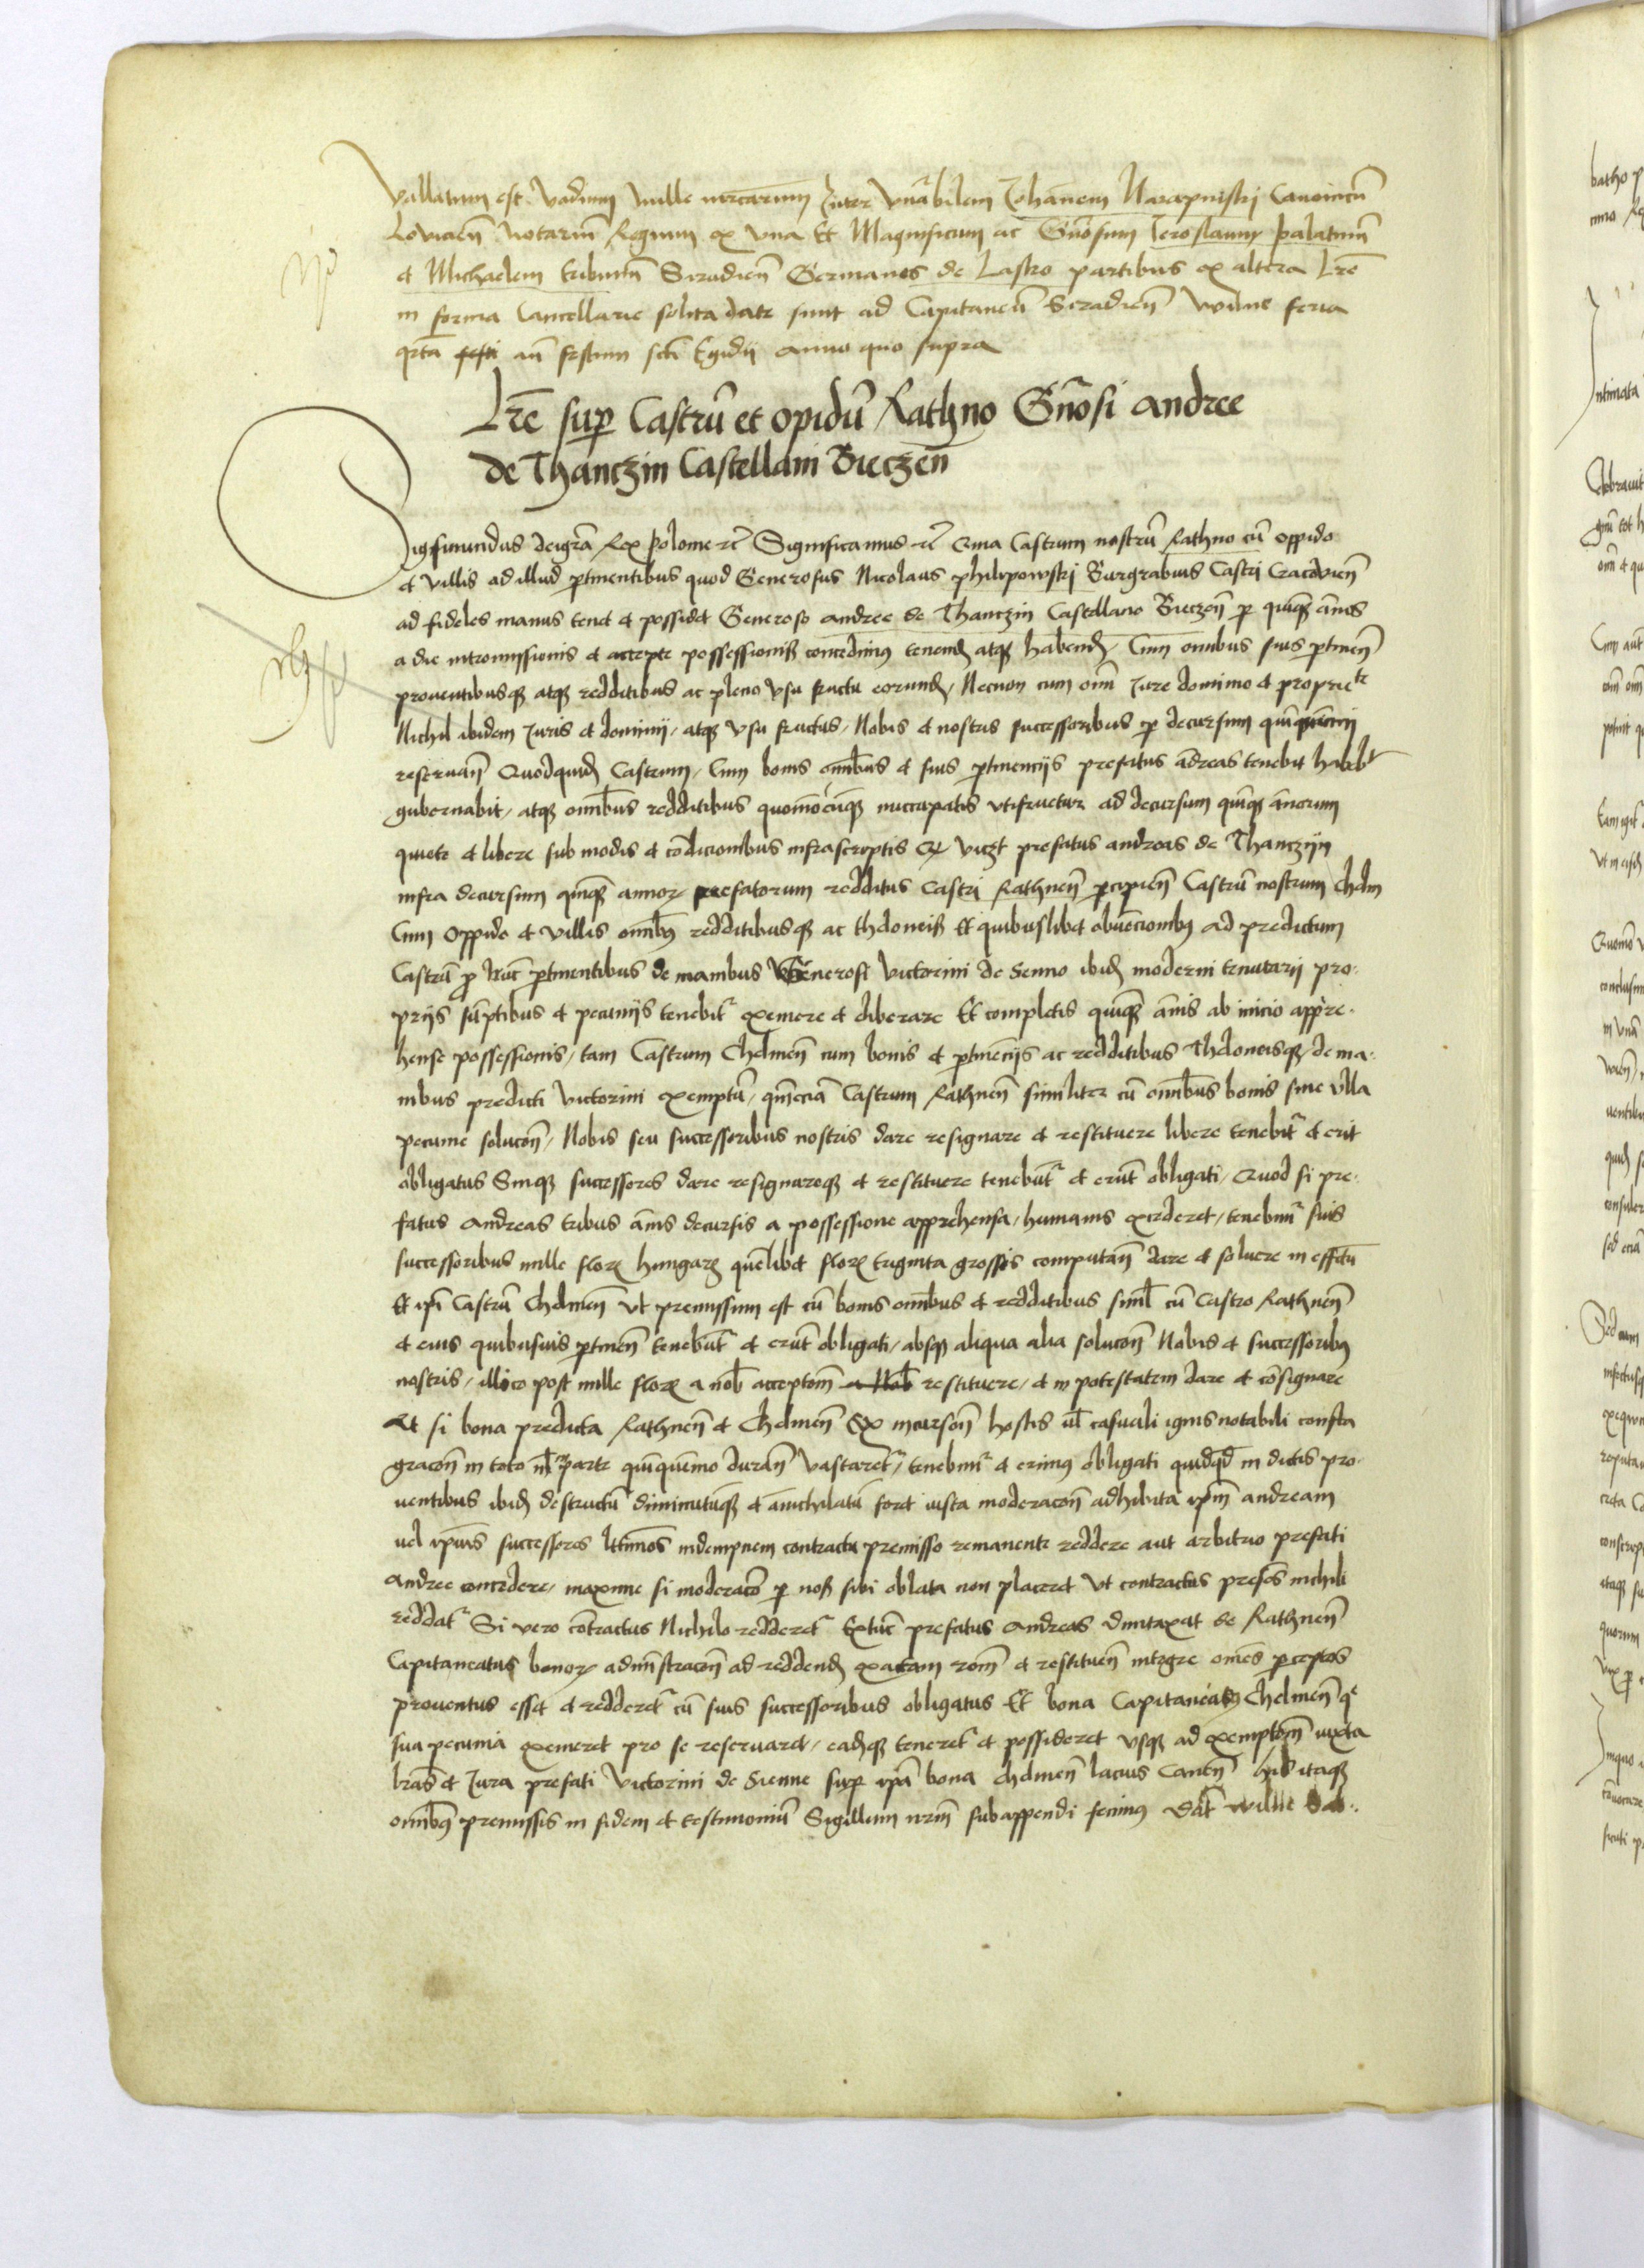 Vallatum est Vadium mille marcarum Inter Vnabilem Johannem Naropinskj Canonicū
Lovicien̄ Notariū Regium ex vna Et Magnificum ac Gn̄osum Ieroslaum palatinū
et Michaelem tribunū Siradien̄ Germanos de Lasko partibus ex altera Lre
in forma Cancellarie solita date sunt ad Capitaneū Siradien̄ Wilne feria
qrta festi an̄ festum scti Egidij anno quo supra
Lrē sup Castrū et opidū Rathno Gn̄osi andree
de Thanczin Castellani Bieczen̄
Sigismundus deigrā Rex polonie rc Significamus rc Quia Castrum nostrū Rathno cū oppido
et villis ad illud ptinentibus quod Generosus Nicolaus philipowskj Burgrabius Castri Cracovien̄
ad fideles manus tenet et possidet Generoso andree de Thanczin Castellano Bieczen̄ p quinq annos
a die intromissionis et accepte possessionis concedimus tenend atq habend / Cum omnibus suis ptinen̄
proventibusq atq redditibus ac pleno vsu fructu eorund / Necnon cum omī Jure dominio et proprietate
Nichil ibidem Juris et dominij / atq vsu fructus / Nobis et nostris successoribus p decursum quinquennij
reservan̄ Quodquid Castrum / Cum bonis omībus et suis ptinencijs prefatus andreas tenebit habebit
gubernabit / atq omībus redditibus quomōcunq nuccupatis vtifruetur ad decursum quinq annorum
quiete et libere sub modis et condicionibus infrascriptis Q viczt prefatus andreas de Thanczijn
infra decursum quinq annor prefatorum redditus Castri Rathnen̄ pcipien̄ Castrū nostrum chelm
Cum oppido et villis omībus redditibusq ac theloneis Et quibuslibet obvēcionibus ad predictum
Castrū pro nūc ptinentibus de manibus Generosi victorini de Senno ibid moderni tenutarij pro-
priis sūptibus et pecunijs tenebit exemere et liberare Et completis quinq annis ab inicio appre-
hense possessionis / tam Castrum Chelmen̄ cum bonis et ptinēcijs ac redditibus Theloneisq / de ma-
nibus predicti victorini exemptū / qm̄eciā Castrum Rathnen̄ similiter cū omībus bonis sine vlla
pecunie solucōn̄ / Nobis seu successoribus nostris dare resignare et restituere libere tenebit et erit
obligatus Suiq successores dare resignareq et restituere tenebūt et erūt obligati / Quod si pre-
fatus andreas tribus annis decursis a possessione apprehensa / humanis excederet / tenebimur suis
successoribus mille flor hungar quēlibet flor triginta grossis computan̄ dare et solvere in effectu
Et ipī Castrū Chelmen̄ vt premissum est cū bonis omībus et redditibus siml cū Castro Rathnen̄
et eius quibusvis ptinen̄ tenebūt et erūt obligati / absq aliqua alia solucōn̄ Nobis et successoribus
nostris / illico post mille flor a nob acceptōm a Nob restituere / et in potestatem dare et cōsignare
At si bona predicta Rathnen̄ et Chelmen̄ Ex incursōn̄ hostis vl casuali ignis notabili confla
gracōn̄ in toto vl parte quinquennio duran̄ vastaret / tenebimur et erimus obligati quidqd in dictis pro-
ventibus ibid destructū diminutūq et annichilatū foret iusta moderacōn̄ adhibita ipm̄ andream
vel ipīus successores lttimos indempnem contractu premisso remanente reddere aut arbitrio prefati
andree concedere / maxime si moderacō p nos sibi oblata non placeret vt contractus presēs nichili
reddat Si vero contractus Nichilo redderet Extūc prefatus andreas dumtaxat de Rathnen̄
Capitaneatus bonor adminstracōn̄ ad reddend exactam rōm et restituen̄ integre omēs pceptos
proventus esset et redderet cū suis successoribus obligatus Et bona Capitaneatus Chelmen̄ q
sua pecunia exemeret pro se reservaret / eadq teneret et possideret vsq ad exemptōm iuxta
lrās et Jura prefati victorini de Sienne sup ipā bona chelmen̄ lacius Canēn̄ his itaq
omībus premissis in fidem et testimoniū Sigillum nrm̄ subappendi fecimus Dat wilne Sab